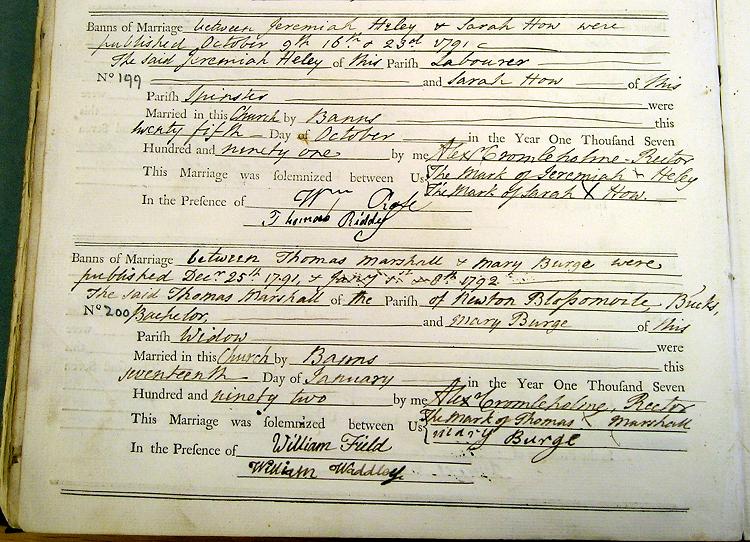 Banns of Marriage between Jeremiah Heley & Sarah How were
published October 9th 16th & 23d 1791
The said Jeremiah Heley of this Parish Labourer
No 199 and Sarah How of this
Parish Spinster were
Married in this Church by Banns this
twenty fifth Day of October in the Year One Thousand Seven
Hundred and ninety one by me Alexr Cromleholme - Rector
This Marriage was solemnized between Us The Mark of Jeremiah Heley
The Mark of Sarah X How.
In the Presence of Wm Rose
Thomas Riddey
Banns of Marriage between Thomas Marshall & Mary Burge were
published Decr 25th 1791, & Jany 1st & 8th 1792
The said Thomas Marshall of the Parish of Newton Blossomvile, Bucks,
No 200 Bachelor, and Mary Burge of this
Parish Widow were
Married in this Church by Banns this
seventeenth Day of January in the Year One Thousand Seven
Hundred and ninety two by me Alexr Cromleholme, Rector
This Marriage was solemnized between Us The Mark of Thomas X Marshall
Mary Burge
In the Presence of William Field
William Waddley